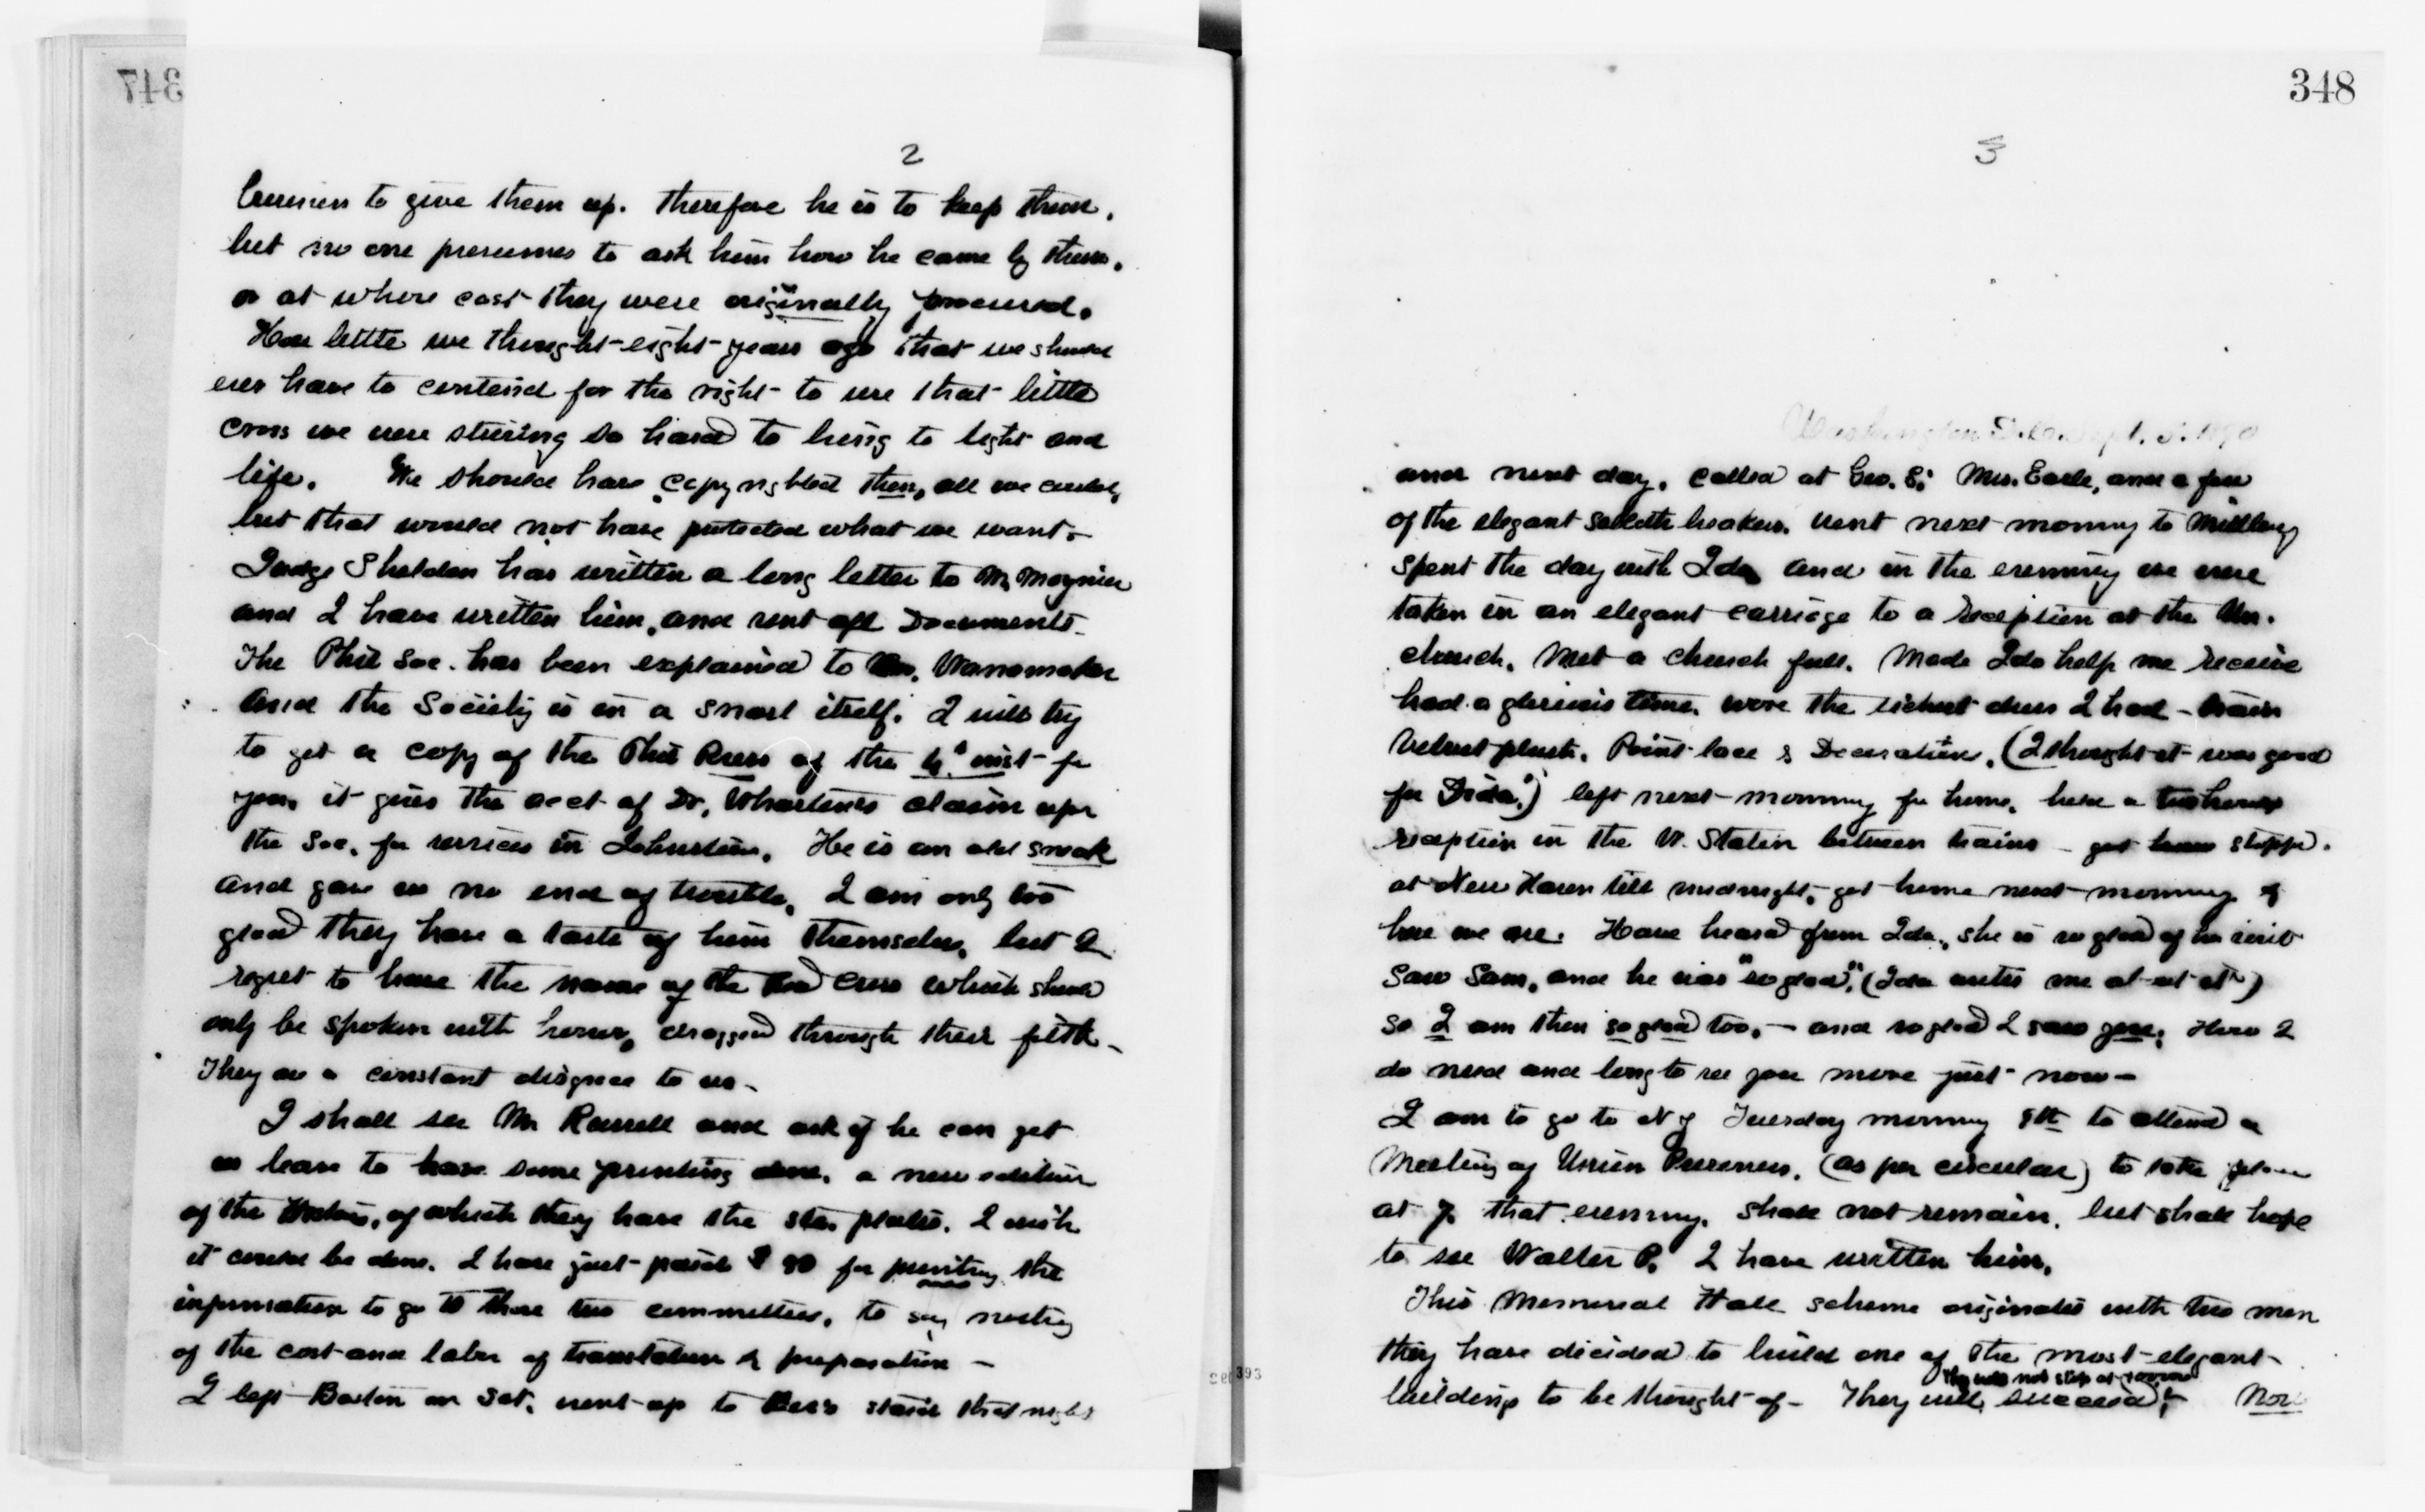 347
2
business to give them up. Therefore he is to keep them,
but no one presumes to ask him how he came by them,
or at whose cost they were originally procured.
How little we thought eight years ago that we should
ever have to contend for the right to use that little
cross we were striving so hard to bring to light and
life. We should have copyrighted then, all we could,
but that would not have protected what we want.
Judge Sheldon has written a long letter to Mr Moynier
and I have written him, and sent all Documents.
The Phil Soc. has been explained to Wanamaker
and the Society is in a snarl itself. I will try
to get a copy of the Phil Press of the inst for
you, it gives the acct of Dr. Wharton's claim upon
the Soc. for services in Johnstown. He is an old sneak
and gave us no end of trouble, I am only too
glad they have a taste of him themselves, but I
regret to have the name of the Red Cross which should
only be spoken with honor, dragged through their filth -
They are a constant disgrace to us -
I shall see Mr Russell and ask if he can get
us leave to have some printing done, a new edition
of the History, of which they have the plates. I wish
it could be done. I have just paid $90 for printing the
information to go to those two committees, to say nothing
of the cost and labor of translation & preparation -
I left Boston on Sat. went up to staid that night
348
3
Washington D.C. Sept. 5. 1890
and next day, called at Geo. S. Mrs. Earle, and a few
of the elegant went next morning to Millbury
spent the day with Ida and in the evening we were
taken in an elegant carriage to a reception at the Un.
church. Met a church full. Made Ida help me receive
had a glorious time. wore the richest dress I had - train
velvet plush. Point lace & Decorations. (I thought it was good
for Ida.) left next morning for home, held a two hours
reception in the W. Station between trains - got stopped
at New Haven till midnight, got home next morning &
here we are. Have heard from Ida, she is so glad of her visit
Saw Sam, and he was "so glad", (Ida writes me)
So I am then so glad too, - and so glad I saw you. How I
do need and long to see you more just now -
I am to go to N Y Tuesday morning 9th to attend a
Meeting of Union Prisoners, (as per circular) to take place
at 7. that evening. Shall not remain, but shall hope
to see Walter P. I have written him.
This Memorial Hall scheme originates with two men
they have decided to build one of the most elegant
they will not stop at
buildings to be thought of - They will succeed, Now
393